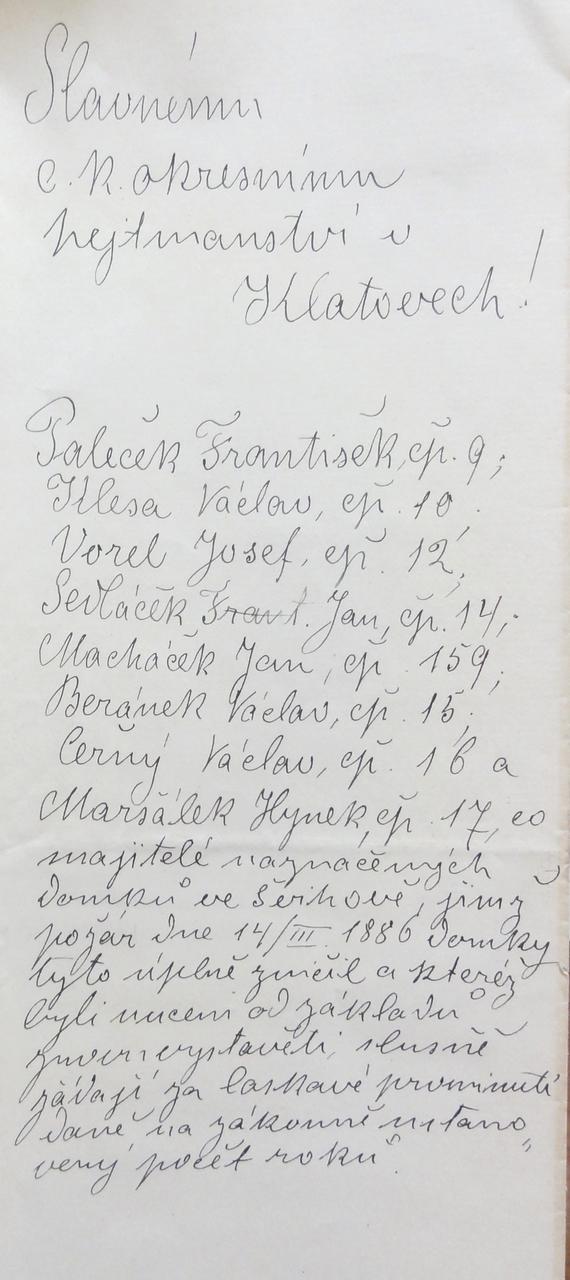 Slavnému
c. k. okresnímu
hejtmanství v
Klatovech!
Paleček František, čp. 9;
Klesa Václav, čp. 10;
Vorel Josef, čp. 12;
Sedláček Frant. Jan, čp. 14;
Macháček Jan, čp. 159;
Beránek Václav, čp. 15;
Černý Václav, čp. 16 a
Maršálek Hynek, čp. 17, co
majitelé naznačených
domků ve Švihově, jimž
požár dne 14/III. 1886 domky
tyto úplně zničil a kteréž
byli nuceni od základů
znovu vystavěti, slušně
žádají za laskavé prominutí
daně na zákonně ustano„
vený počet roků.